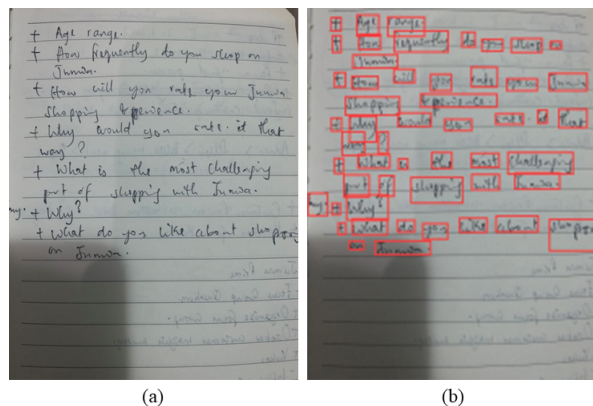 + Age range.
+ How frequently do you shop on
Jumia.
+ How will you rate your Jumia
shopping experience.
+ Why would you rate it that
way?
+ What is the most challenging
part of shopping with Jumia.
+ Why?
+ What do you like about shopping
on Jumia.
(a)
+ Age range.
+ How frequently do you shop on
Jumia.
+ How will you rate your Jumia
shopping experience.
+ Why would you rate it that
way?
+ What is the most challenging
part of shopping with Jumia.
+ Why?
+ What do you like about shopping
on Jumia.
(b)